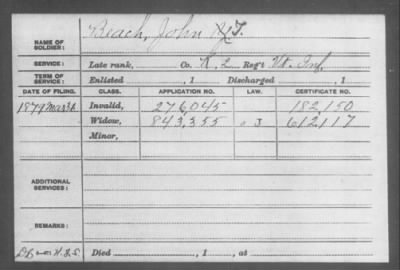 NAME OF SOLDIER: Beach, John
SERVICE: Late rank, Co. K. 2 Reg't Vt. Inf.
TERM OF SERVICE: Enlisted , 1 Discharged , 1
DATE OF FILING. CLASS. APPLICATION NO. LAW. CERTIFICATE NO.
1879 Mar Invalid, 276045 182,150
Widow, 843,355 J 612,117
Minor,
ADDITIONAL SERVICES:
REMARKS:
Died , 1 , at